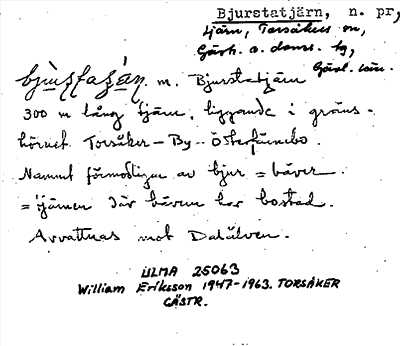 Bjurstatjärn, n. pr.,
tjärn, Torsåkers sn,
Gästr. ö. doms. tg,
Gävl. län.
m. Bjurstatjärn
300 m lång tjärn, liggande i gräns-
hörnet Torsåker – By – Österfärnebo.
Namnet förmodligen av bjur = bäver
= tjärnen där bävern har bostad.
Avvattnas mot Dalälven.
ULMA 25063
William Eriksson 1947-1963. TORSÅKER
GÄSTR.